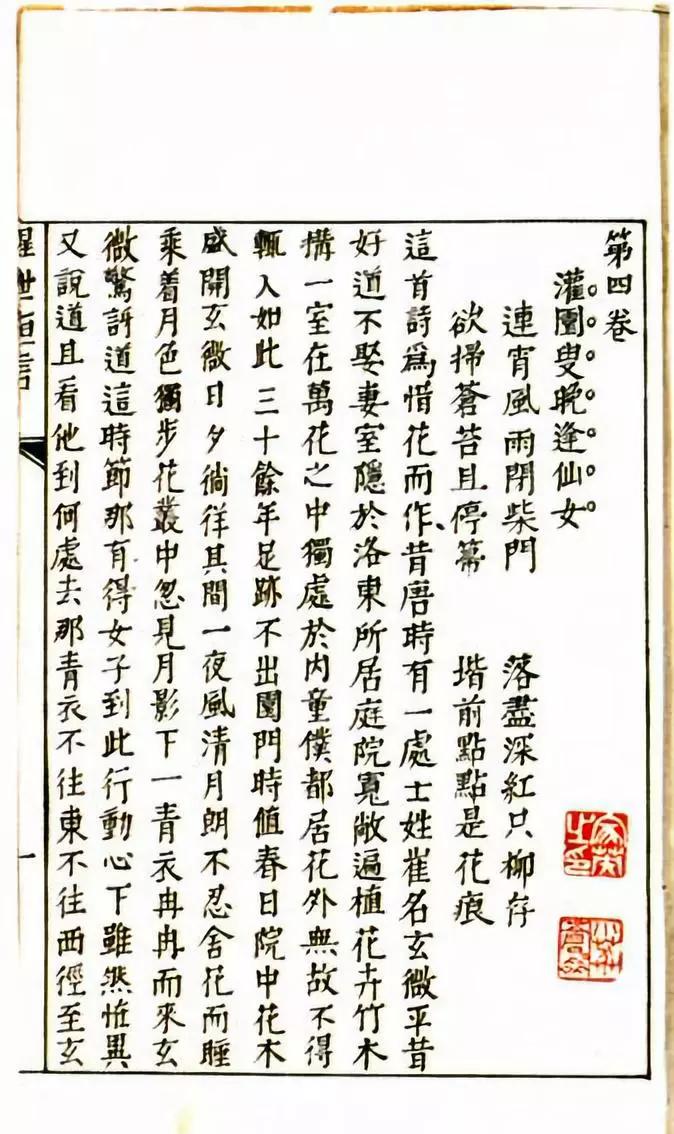 第四卷
灌園叟晚逢仙女
連宵風雨閉柴門 落盡深紅只柳存
欲掃蒼苔且停箒 堦前點點是花痕
這首詩爲惜花而作、昔唐時有一處士姓崔名玄微平昔
好道不娶妻室隱於洛東所居庭院寬敞遍植花卉竹木
搆一室在萬花之中獨處於內童僕都居花外無故不得
輒入如此三十餘年足跡不出園門時值春日院中花木
盛開玄微日夕徜徉其間一夜風清月朗不忍舍花而睡
乘着月色獨步花叢中忽見月影下一青衣冉冉而來玄
微驚訝道這時節那有得女子到此行動心下雖然怪異
又說道且看他到何處去那青衣不往東不往西徑至玄
醒世恒言
一
家英之印